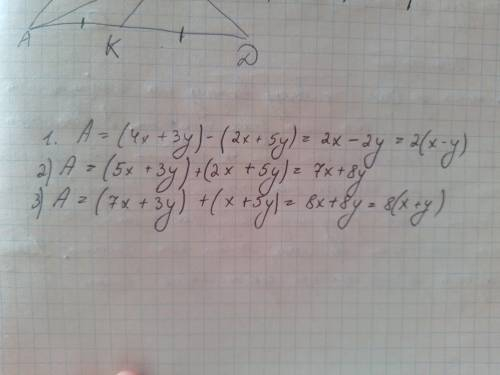 A
K
D
1. A = (4x + 3y) - (2x + 5y) = 2x - 2y = 2(x-y)
2) A = (5x + 3y) + (2x + 5y) = 7x + 8y
3) A = (7x + 3y) + (x + 5y) = 8x + 8y = 8(x+y)